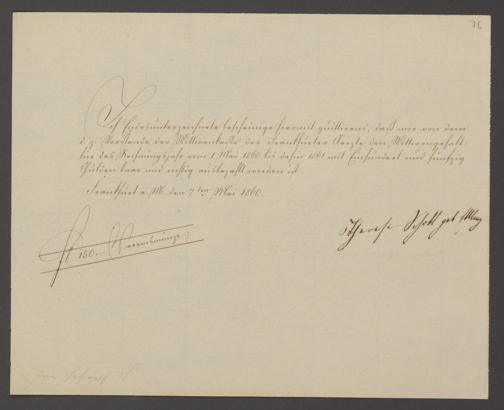 76
Ich Endesunterzeichnete bescheinige hiermit quittirend, daß mir von dem
d. z. Vorstande der Wittwenkasse der Frankfurter Aerzte der Wittwengehalt
für das Rechnungsjahr vom 1 Mai 1860 bis dahin 1861 mit Einhundert und fünfzig
Gulden baar und richtig ausbezahlt worden ist
Frankfurt a. M. den 7ten Mai 1860.
Therese Schott geb.
fl 150 Vereinsmünze